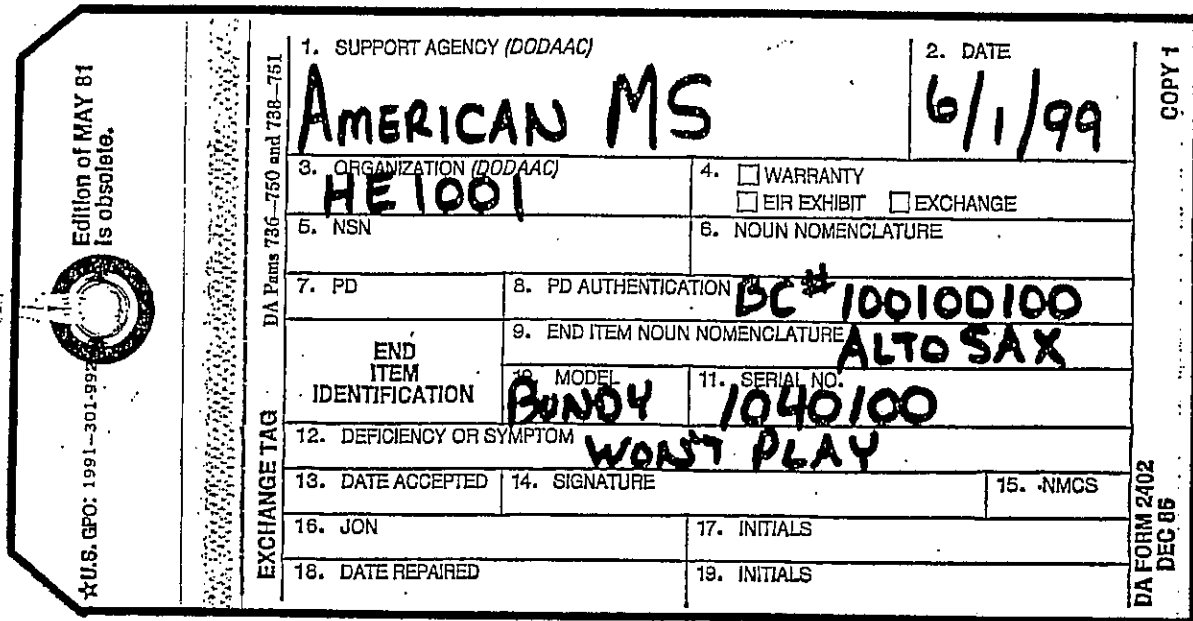 Edition of MAY 81
is obsolete.
☆U.S. GPO: 1991-301-992
EXCHANGE TAG
DA Pams 736—750 and 738—751
1. SUPPORT AGENCY (DODAAC)
AMERICAN MS
2. DATE
6/1/99
3. ORGANIZATION (DODAAC)
HE1001
4. □ WARRANTY
□ EIR EXHIBIT □ EXCHANGE
5. NSN
6. NOUN NOMENCLATURE
7. PD
8. PD AUTHENTICATION BC# 100100100
END
ITEM
IDENTIFICATION
9. END ITEM NOUN NOMENCLATURE ALTO SAX
10. MODEL
BUNDY
11. SERIAL NO.
1040100
12. DEFICIENCY OR SYMPTOM WON'T PLAY
13. DATE ACCEPTED
14. SIGNATURE
15. NMCS
16. JON
17. INITIALS
18. DATE REPAIRED
19. INITIALS
DA FORM 2402
DEC 86
COPY 1